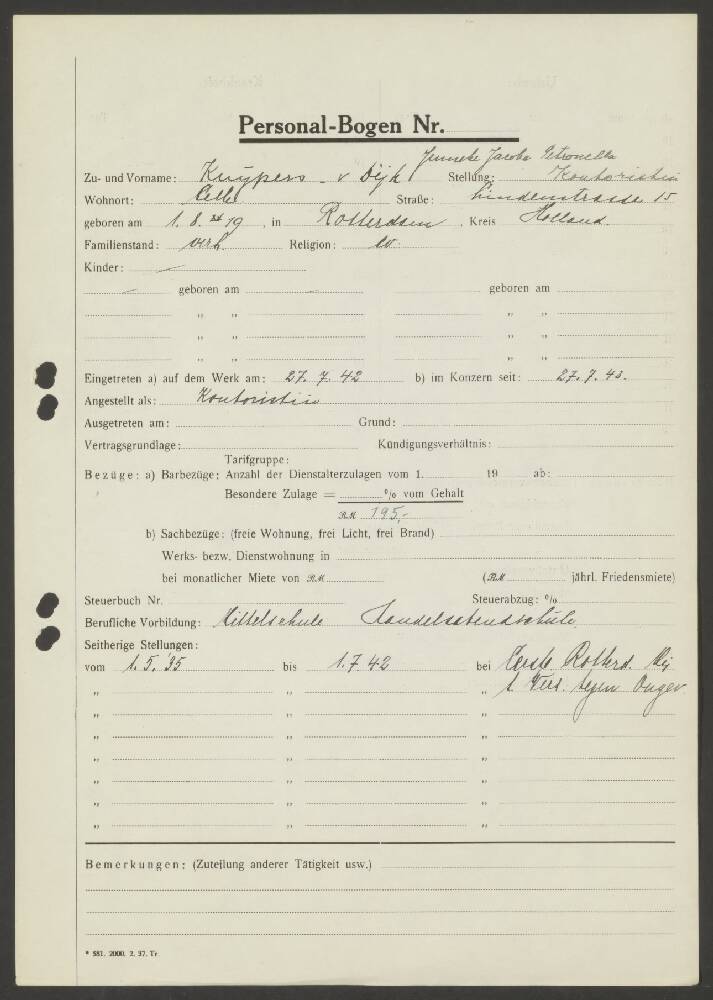 Personal-Bogen Nr.
Jacoba Petronella
Zu- und Vorname: Kuypers - v Dijk Stellung: Kontoristin
Wohnort: Celle Straße: Lindenstrasse 15
geboren am 1. 8. 19 , in Rotterdam , Kreis Holland.
Familienstand: verh. Religion: ev.
Kinder: —
— geboren am geboren am
" " " "
" " " "
" " " "
Eingetreten a) auf dem Werk am: 27. 7. 42 b) im Konzern seit: 27. 7. 42.
Angestellt als: Kontoristin
Ausgetreten am: Grund:
Vertragsgrundlage: Kündigungsverhältnis:
Tarifgruppe:
Bezüge: a) Barbezüge: Anzahl der Dienstalterzulagen vom 1. 19 ab:
Besondere Zulage = % vom Gehalt
RM 195,-
b) Sachbezüge: (freie Wohnung, frei Licht, frei Brand)
Werks- bezw. Dienstwohnung in
bei monatlicher Miete von RM (RM jährl. Friedensmiete)
Steuerbuch Nr. Steuerabzug: %
Berufliche Vorbildung: Mittelschule Handelsabendschule
Seitherige Stellungen:
vom 1. 5. '35 bis 1. 7 42 bei Eerste Rotterd. Mij
" " " Verz. tegen Ongev
" " "
" " "
" " "
" " "
" " "
" " "
Bemerkungen: (Zuteilung anderer Tätigkeit usw.)
* 581. 2000. 2. 37. Tr.